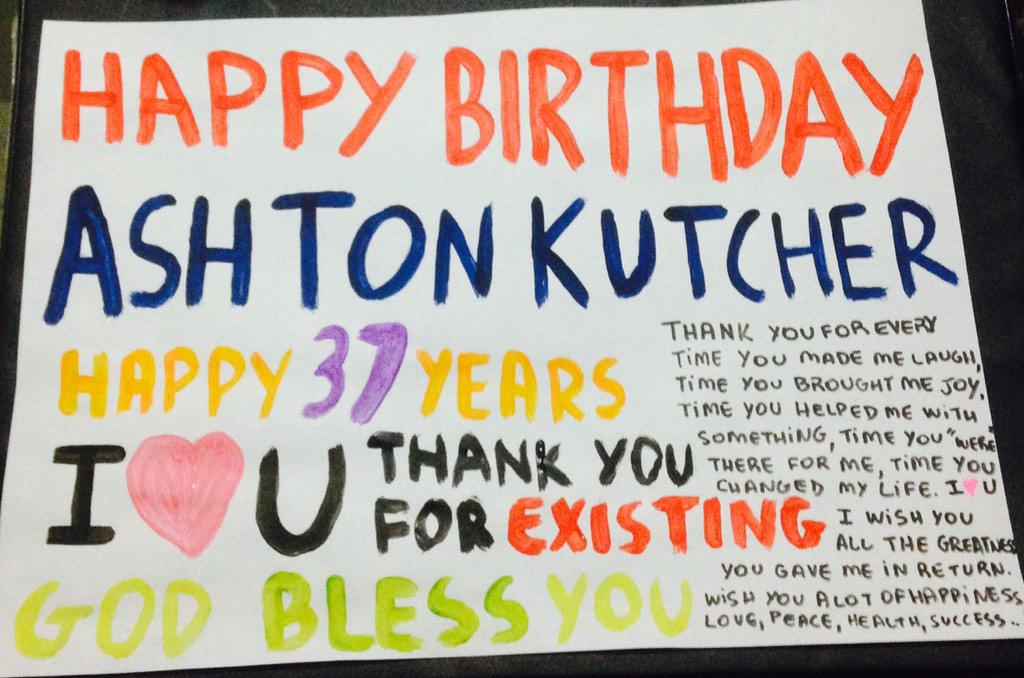 HAPPY BIRTHDAY
ASHTON KUTCHER
HAPPY 37 YEARS
I ♥ U THANK YOU
FOR EXISTING
GOD BLESS YOU
THANK YOU FOR EVERY
TIME YOU MADE ME LAUGH,
TIME YOU BROUGHT ME JOY,
TIME YOU HELPED ME WITH
SOMETHING, TIME YOU "WERE"
THERE FOR ME, TIME YOU
CHANGED MY LIFE. I ♥ U
I WISH YOU
ALL THE GREATNESS
YOU GAVE ME IN RETURN.
WISH YOU A LOT OF HAPPINESS
LOVE, PEACE, HEALTH, SUCCESS..